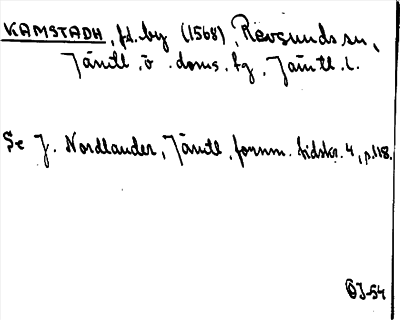 KAMSTADH, fd. by (1568), Revsunds sn,
Jämtl. ö. doms. tg, Jämtl. l.
Se J. Nordlander, Jämtl. fornm. tidskr. 4, p. 118.
ÖJ-54